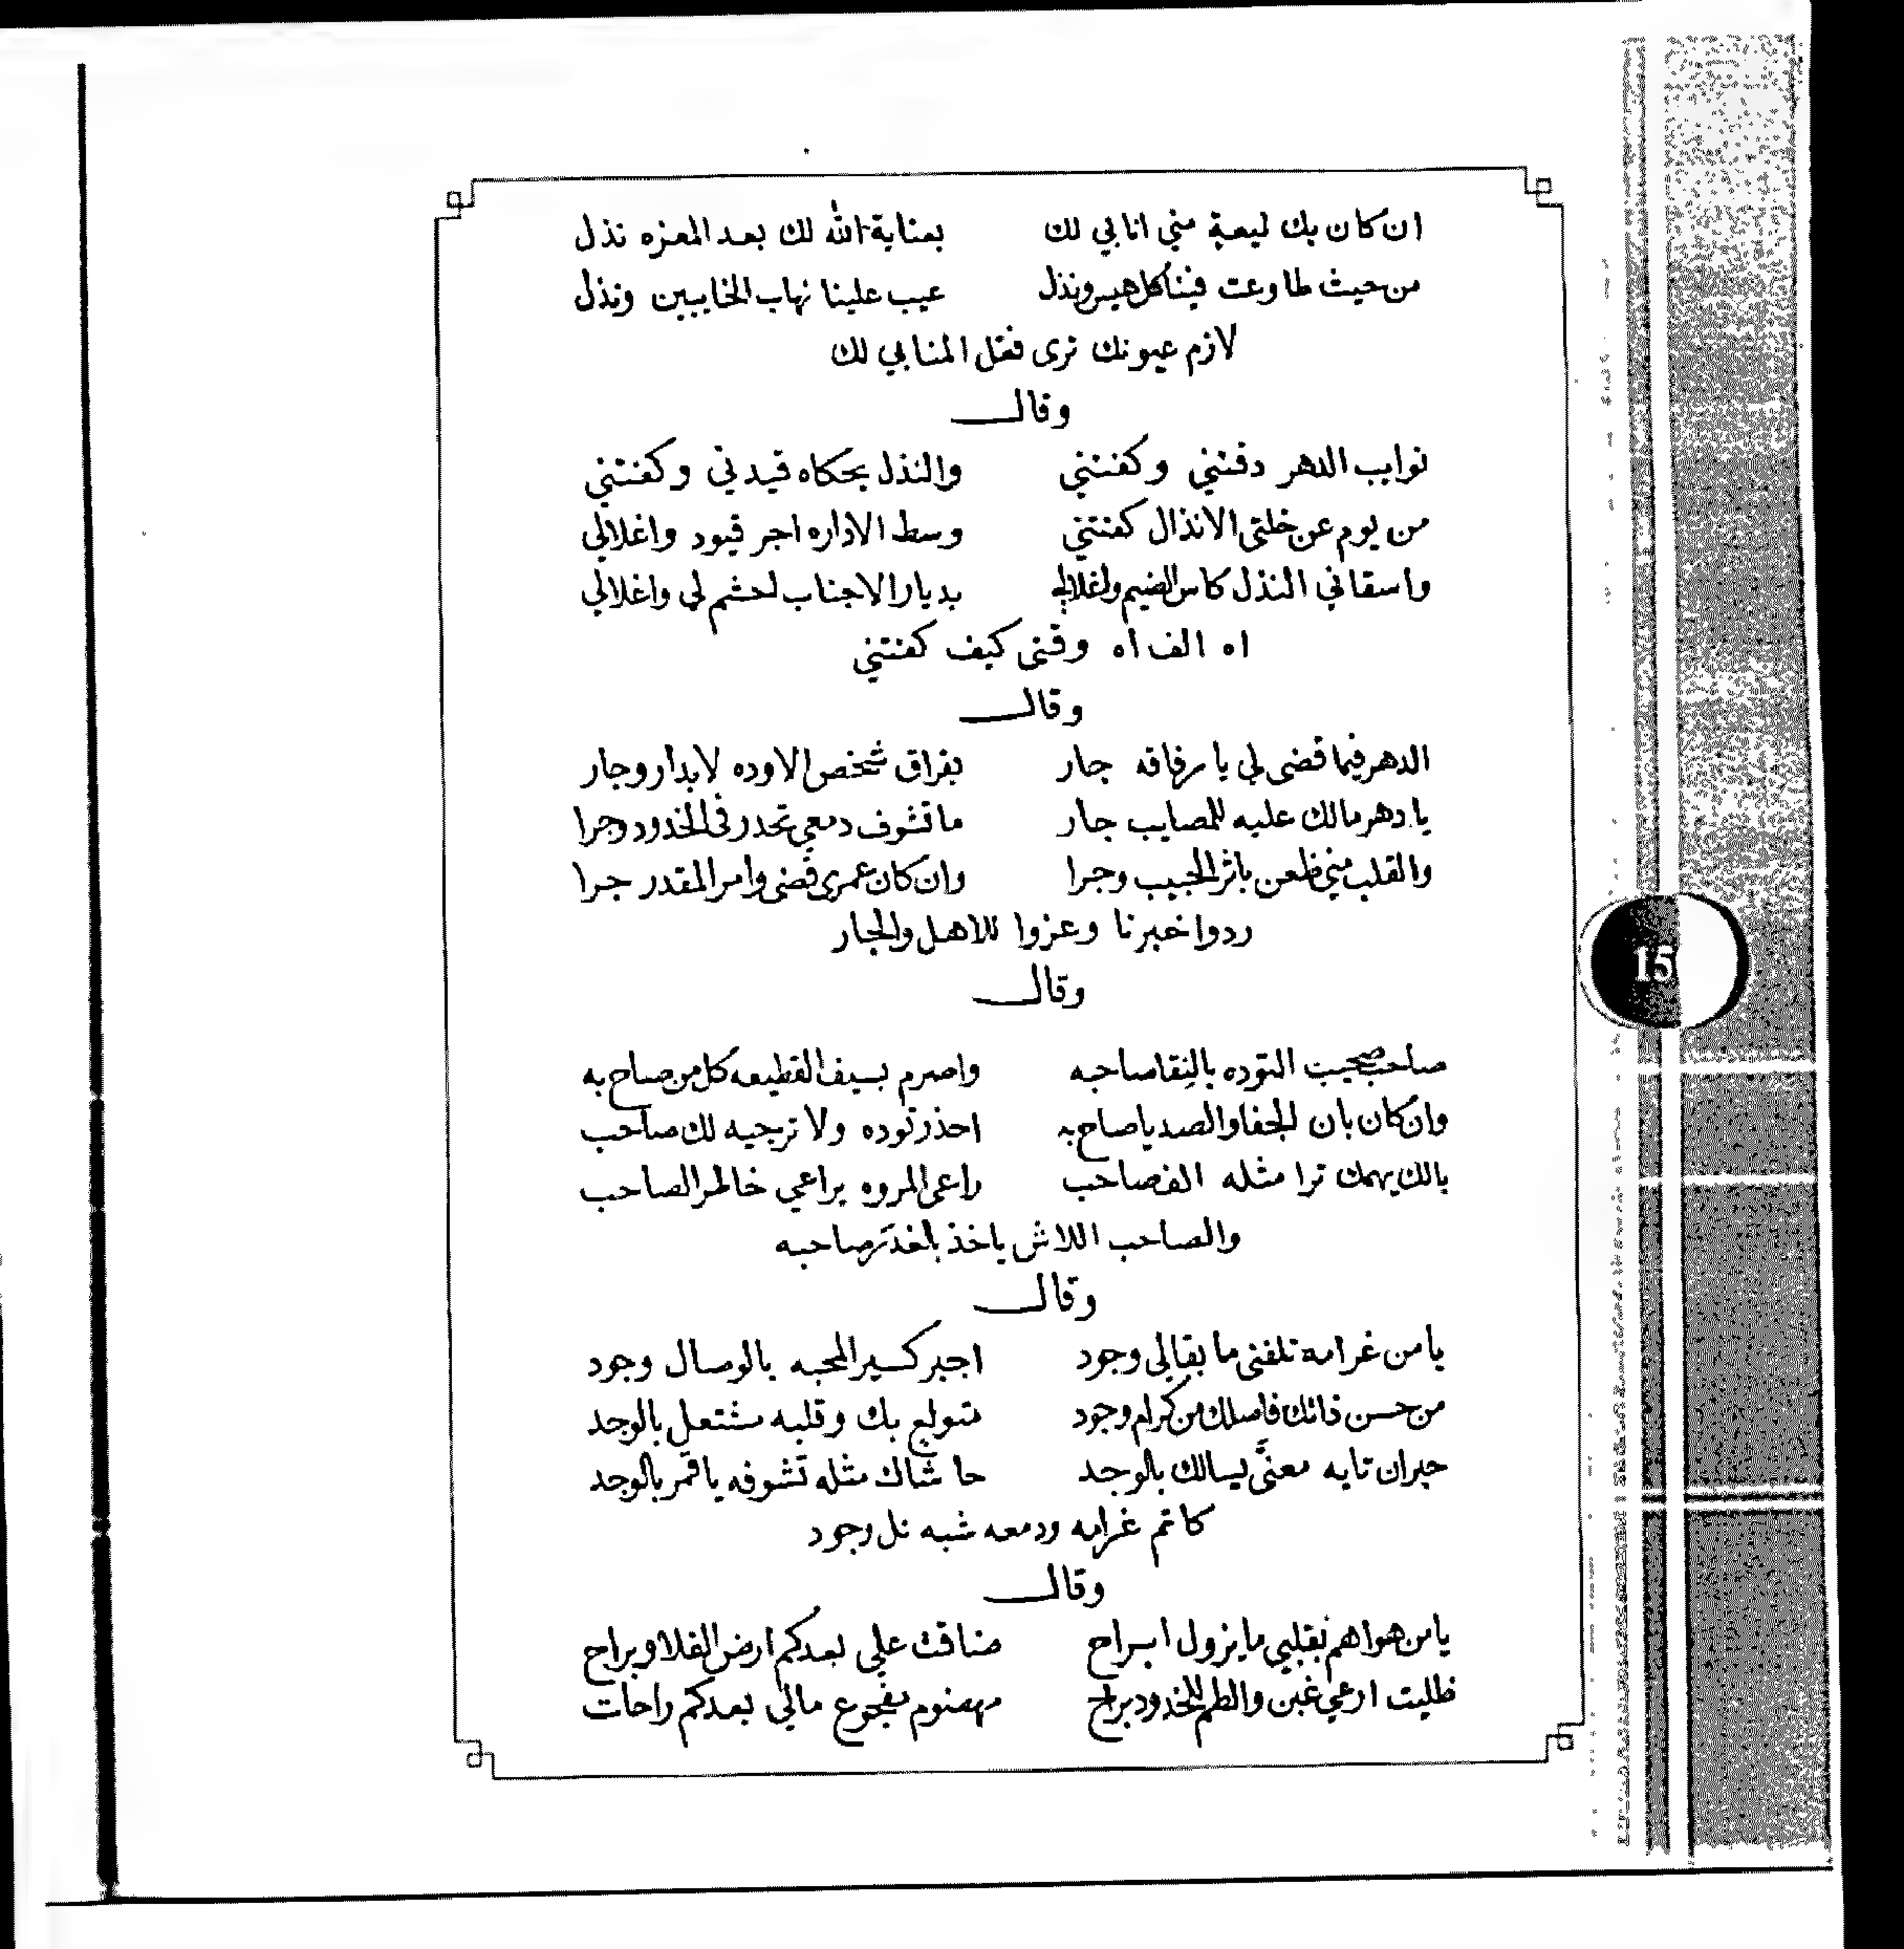 ان كان بك ليعة مني انابي لك بعناية الله لك بعد المعزه نذل
من حيث طاوعت فينا كل هيس ونذل عيب علينا نهاب الخايبين ونذل
لازم عيونك ترى فعل المنابي لك
وقال
نوايب الدهر دفنني وكفنتني والنذل بحكاه قيدني وكفنتني
من يوم عن خلتي الانذال كفنتني وسط الاداره اجر قيود واغلالي
واسقاني النذل كاس الضيم واغلالي بديار الاجناب لحشم لي واغلالي
اه الف اه وقتي كيف كفنتني
وقال
الدهر فيما قضى لي يا رفاقه جار بفراق شخص الاوده لابدار وجار
يا دهر مالك عليه للمصايب جار ما تشوف دمعي تحدر في الخدود وجرا
والقلب مني ظعن باثر الحبيب وجرا وان كان عمري قضى وامر المقدر جرا
ردوا خبرنا وعزوا للاهل والجار
وقال
صاحب صحيب التوده بالنقا صاحبه واصرم بسيف القطيعه كل من صاح به
وان كان بان الجفا والصد يا صاح به احذر توده ولا ترجيه لك صاحب
بالك يهمك ترا مثله الف صاحب راعي المروه يراعي خاطر الصاحب
والصاحب اللاش ياخذ بالغدر صاحبه
وقال
يا من غرامه تلفني ما بقالي وجود اجبر كسير المحبه بالوصال وجود
من حسن ذاتك فاصلك من كرام وجود متولع بك وقلبه مشتعل بالوجد
حيران تايه معنّى ليسالك بالوجد حاشاك مثله تشوفه يا قمر بالوجد
كاتم غرامه ودمعه شبه نل وجود
وقال
يا من هواهم بقلبي ما يزول ابراح ضاقت علي بعدكم ارض الفلا وبراح
ظليت ارعي غبن والطم للخدود براح مهضوم مفجوع مالي بعدكم راحات
15